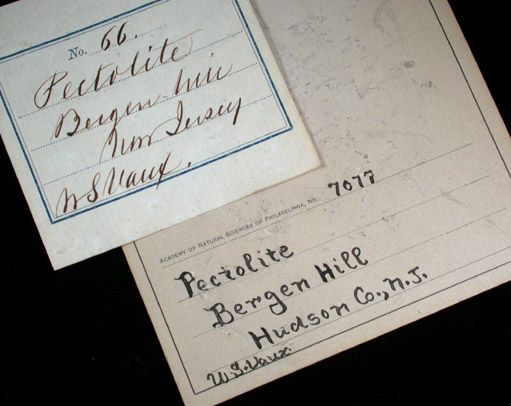 No. 66.
Pectolite
Bergen Hill
New Jersey
W S Vaux.
ACADEMY OF NATURAL SCIENCES OF PHILADELPHIA, No. 7077
Pectolite
Bergen Hill
Hudson Co., N.J.
W.S. Vaux.